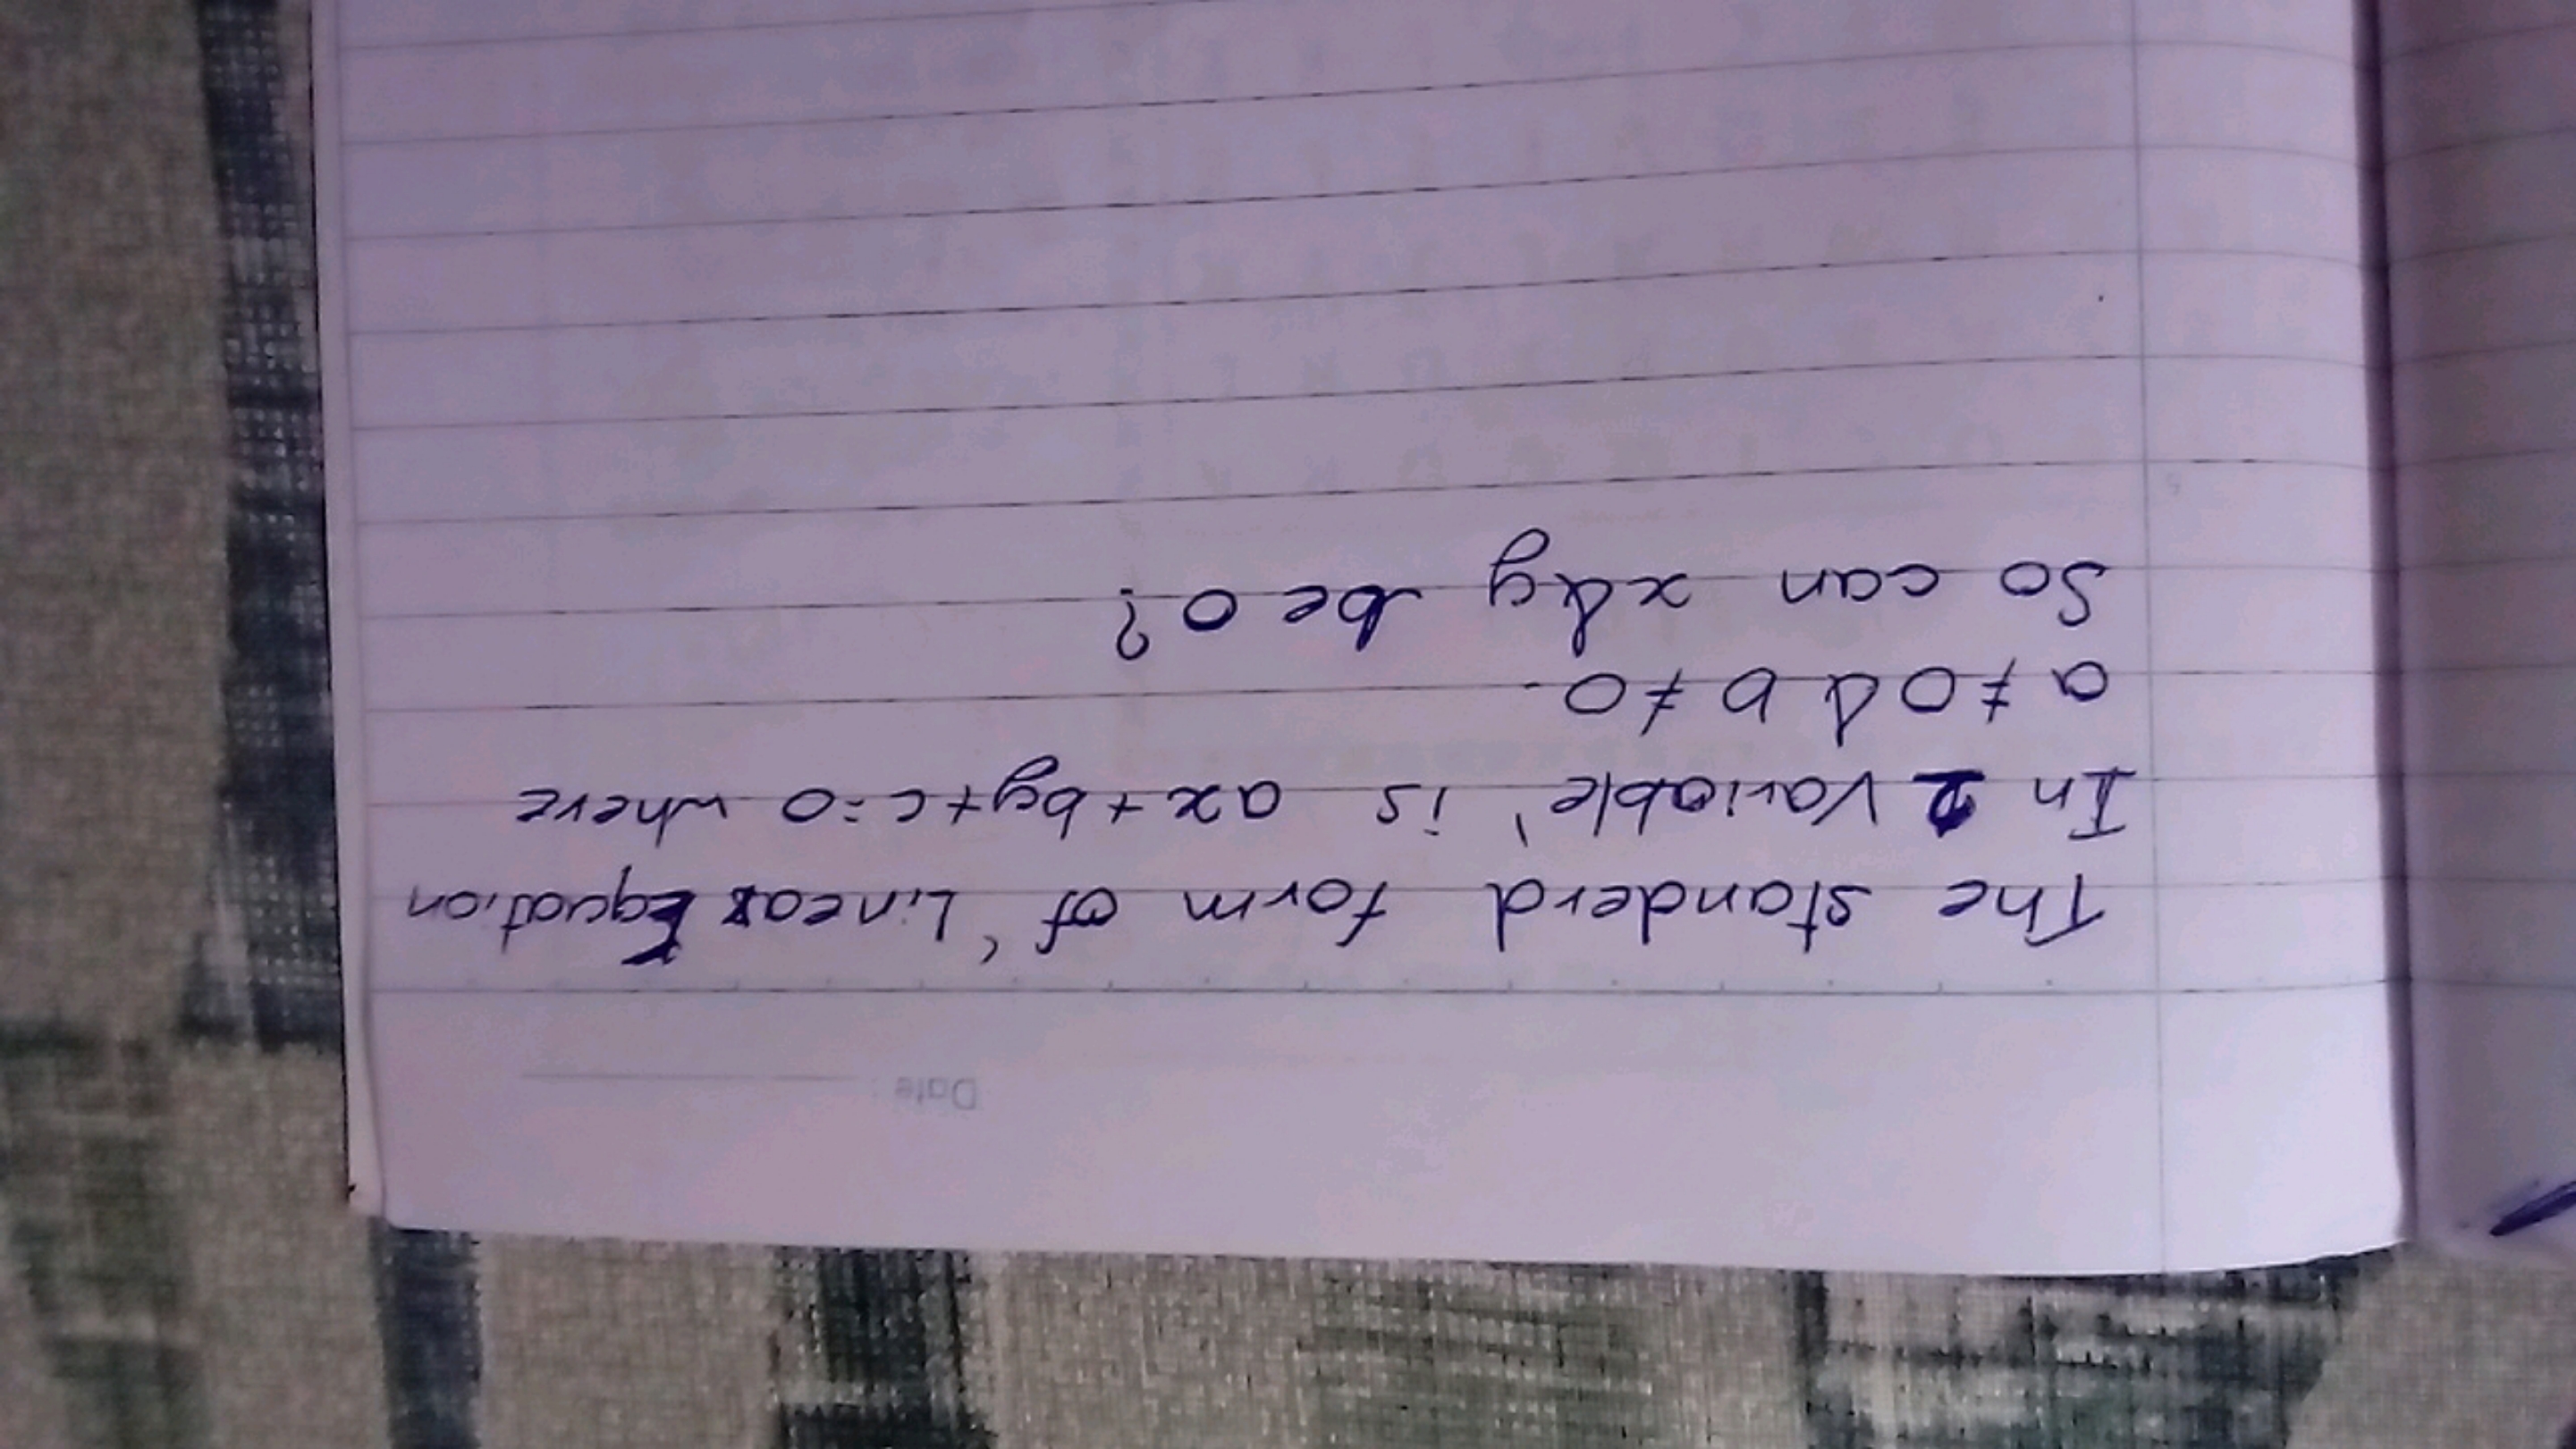 Date :
The standerd form of 'Linear Equation
In 2 Variable' is ax + by + c = 0 where
a ≠ 0 & b ≠ 0.
So can x & y be 0?